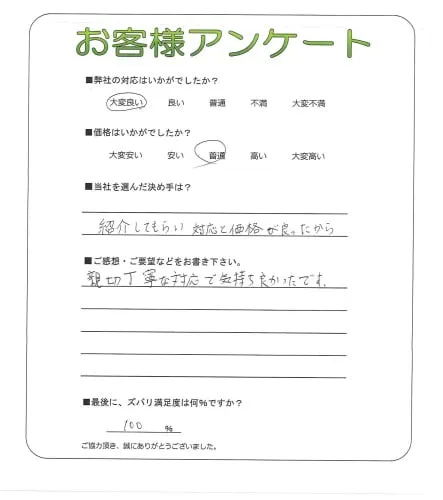 お客様アンケート
■弊社の対応はいかがでしたか？
大変良い 良い 普通 不満 大変不満
■価格はいかがでしたか？
大変安い 安い 普通 高い 大変高い
■当社を選んだ決め手は？
紹介してもらい対応と価格が良ったから
■ご感想・ご要望などをお書き下さい。
親切丁寧な対応で気持ち良かったです。
■最後に、ズバリ満足度は何%ですか？
100 %
ご協力頂き、誠にありがとうございました。